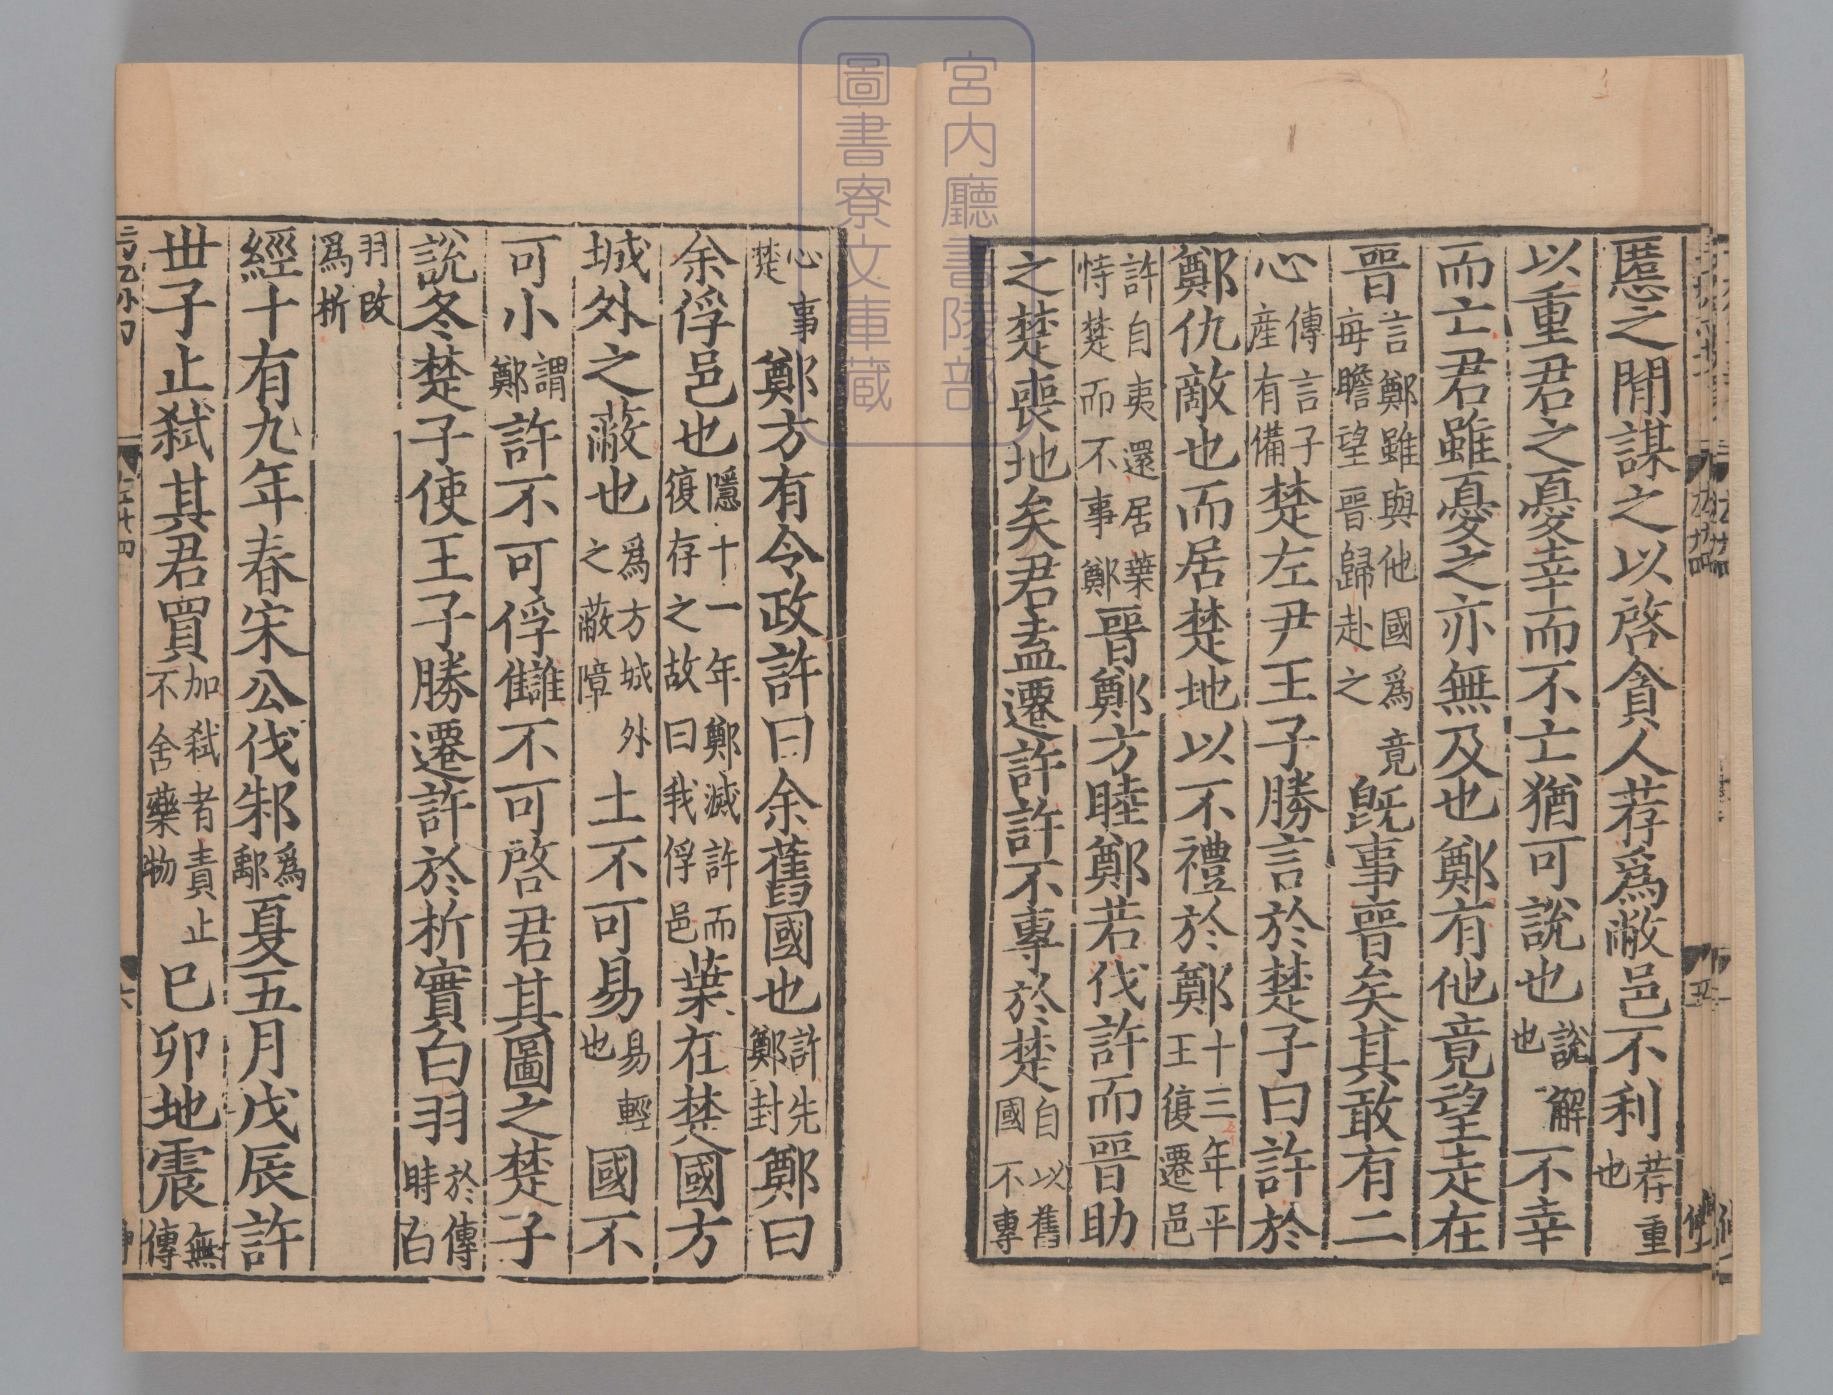 宮内廳書陵部
圖書寮文庫蔵
慝之閒謀之以啓貪人荐爲敝邑不利荐重也
以重君之憂幸而不亡猶可說也說解也不幸
而亡君雖憂之亦無及也鄭有他竟望走在
晉言鄭雖與他國爲竟每瞻望晉歸赴之旣事晉矣其敢有二
心傳言子產有備楚左尹王子勝言於楚子曰許於
鄭仇敵也而居楚地以不禮於鄭十三年平王復遷邑
許自夷還居葉恃楚而不事鄭晉鄭方睦鄭若伐許而晉助
之楚喪地矣君盍遷許許不專於楚自以舊國不專
心事楚鄭方有令政許曰余舊國也許先鄭封鄭曰
余俘邑也隱十一年鄭滅許而復存之故曰我俘邑葉在楚國方
城外之蔽也爲方城外之蔽障土不可易易輕也國不
可小謂鄭許不可俘讎不可啓君其圖之楚子
說冬楚子使王子勝遷許於析實白羽於傳時白
羽改爲析
經十有九年春宋公伐邾爲鄅夏五月戊辰許
丗子止弑其君買加弑者責止不舍藥物己卯地震無傳